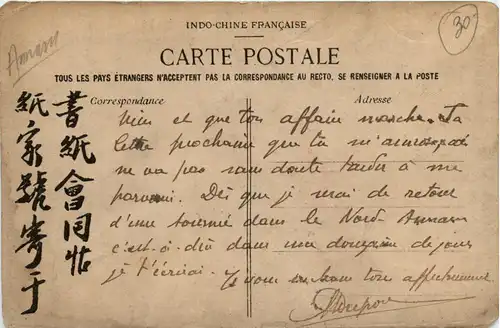 Annam
30
INDO-CHINE FRANÇAISE
CARTE POSTALE
TOUS LES PAYS ÉTRANGERS N'ACCEPTENT PAS LA CORRESPONDANCE AU RECTO, SE RENSEIGNER A LA POSTE
Correspondance
Adresse
書紙會同帖
紙家號寄于
et que ton affaire marche. Ta
lettre prochaine que tu
ne va pas sans doute tarder à me
parvenir. Dès que je serai de retour
d'une tournée dans le Nord Annam
c'est-à-dire dans une douzaine de jours
je t'écrirai. Je vous ton affectionné